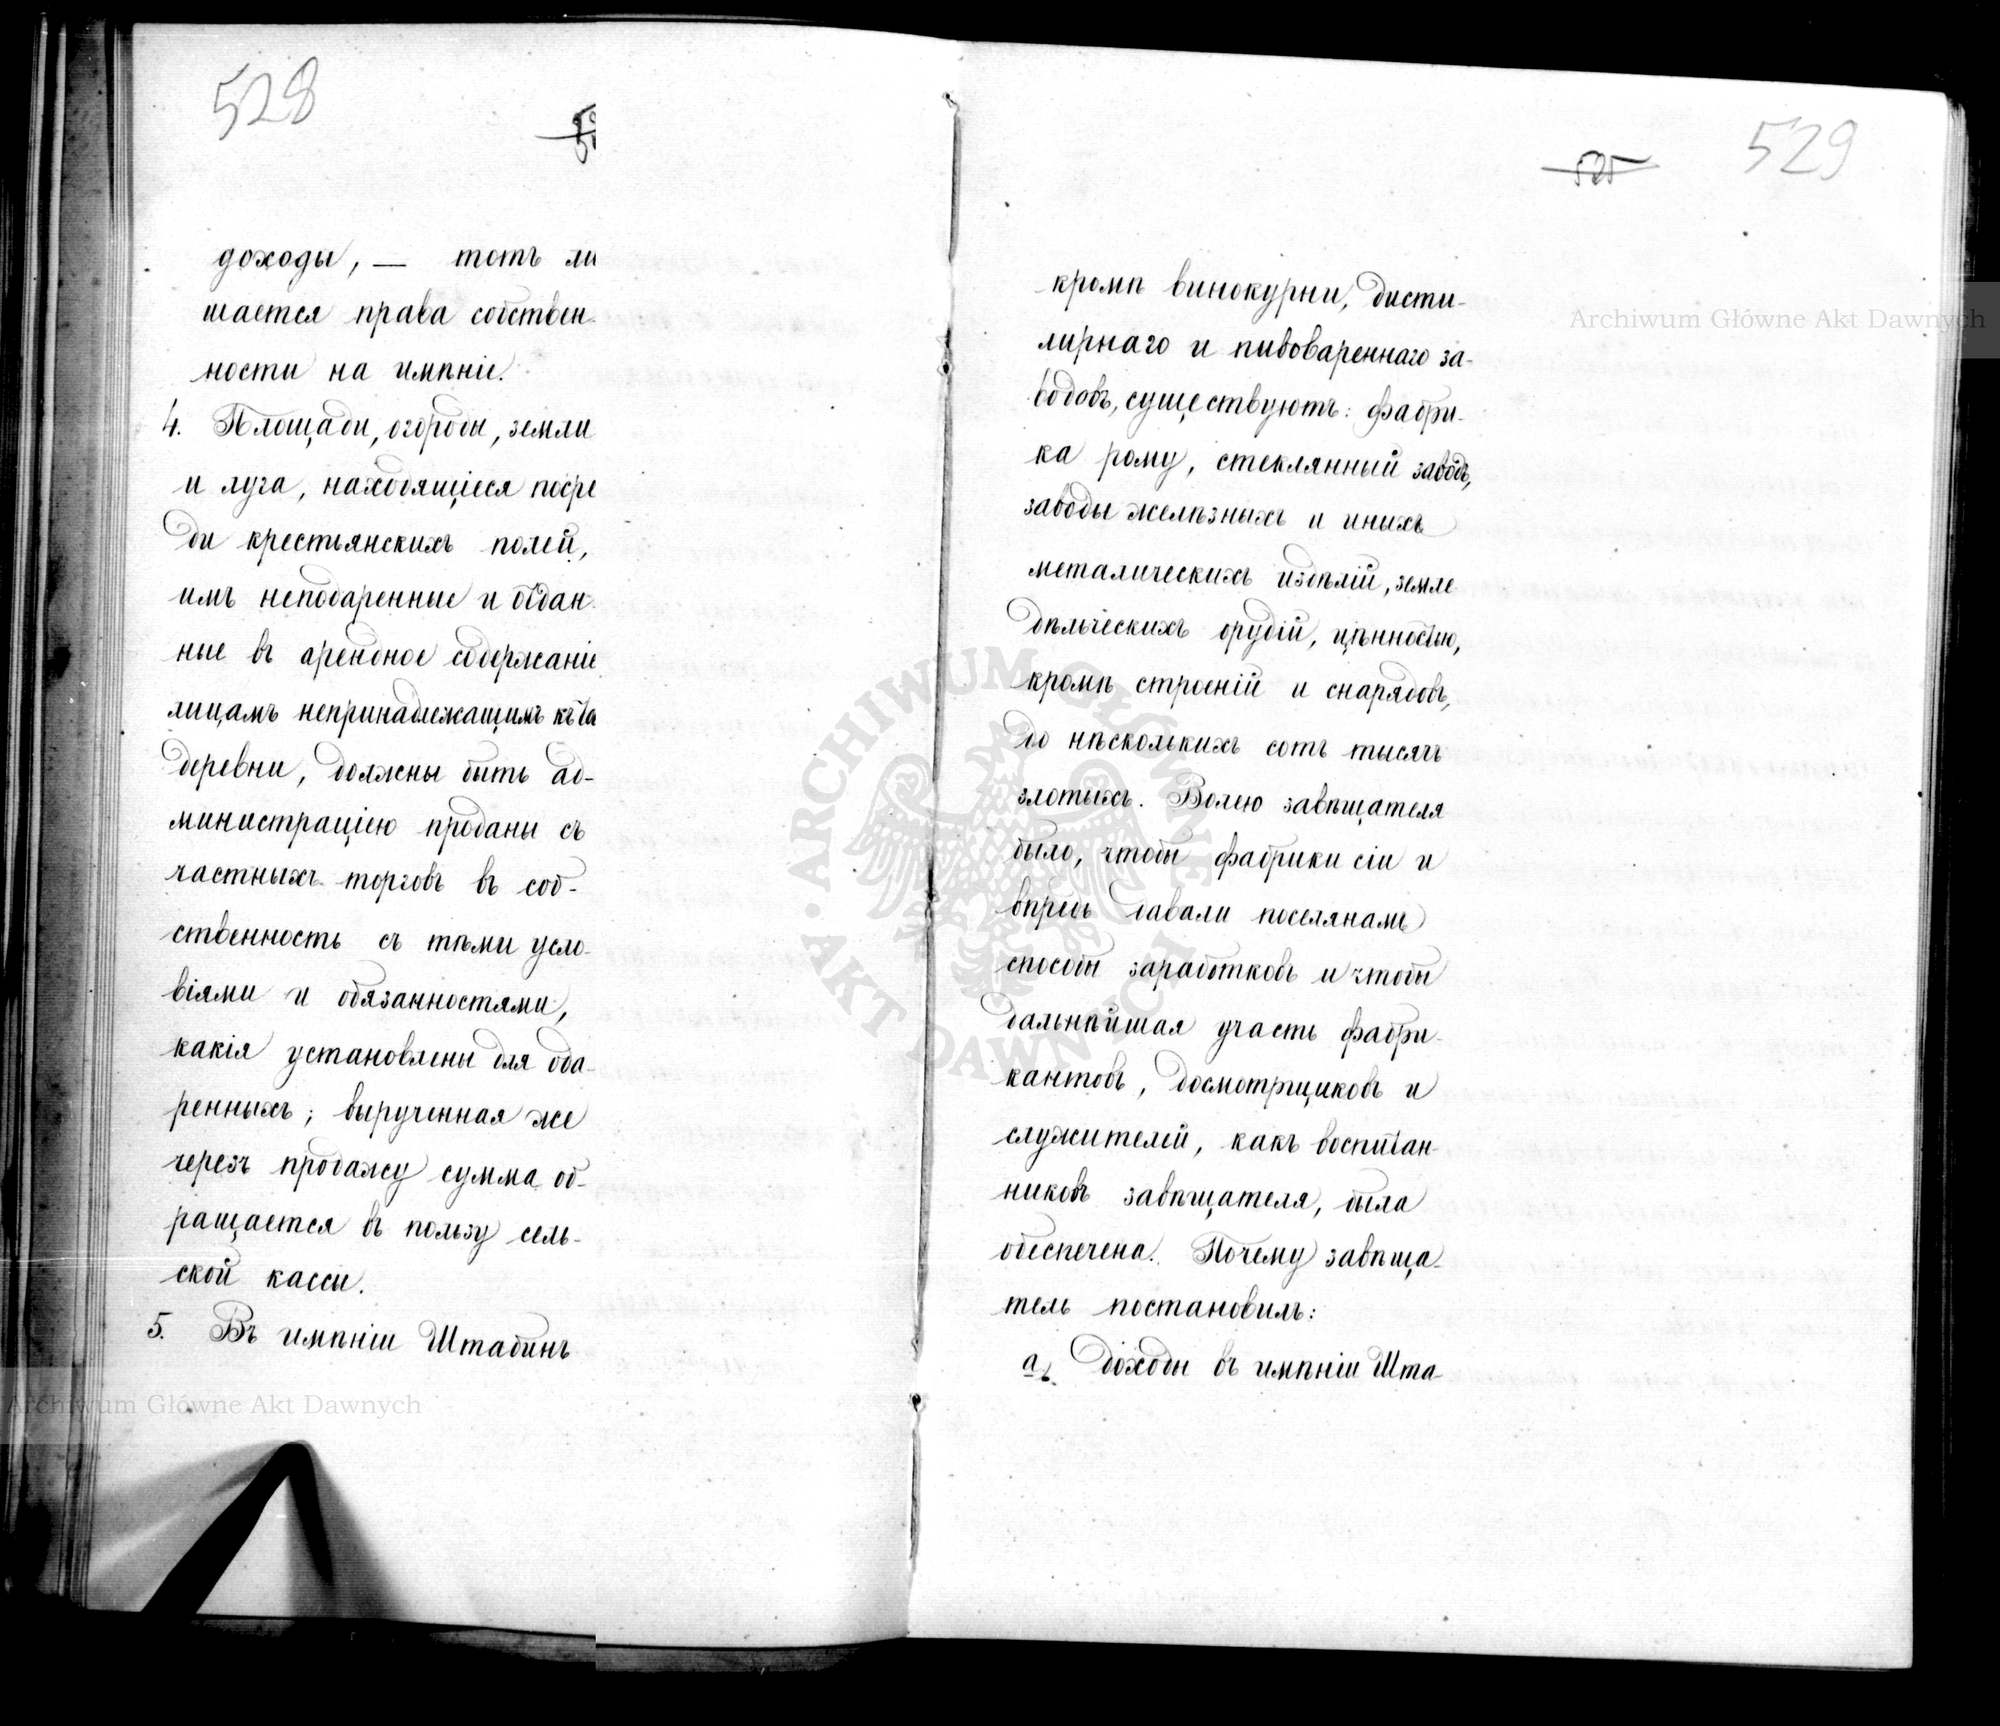 528
доходы, — тотъ ли
шается права собствен-
ности на имѣніе.
4. Площади, огороды, земли
и луга, находящіеся посре
ди крестьянскихъ полей,
имъ неподаренные и отдан-
ные въ арендное содержаніе
лицамъ непринадлежащимъ къ
деревни, должны быть ад-
министраціею проданы съ
частныхъ торговъ въ соб-
ственность съ тѣми усло-
віями и обязанностями,
какія установлены для ода-
ренныхъ; вырученная же
черезъ продажу сумма об-
ращается въ пользу сель-
ской кассы.
5. Въ имѣніи Штабинъ
529
525
кромѣ винокурни, дисти-
лирнаго и пивовареннаго за-
водовъ, существуютъ: фабри-
ка рому, стеклянный заводъ,
заводы желѣзныхъ и иныхъ
металическихъ издѣлій, земле
дѣльческихъ орудій, цѣнностью,
кромѣ строеній и снарядовъ,
до нѣсколькихъ сотъ тысячъ
злотыхъ. Волею завѣщателя
было, чтобы фабрики сіи и
впредь давали поселянамъ
способы заработковъ и чтобы
дальнѣйшая участь фабри-
кантовъ, досмотрщиковъ и
служителей, какъ воспитан-
никовъ завѣщателя, была
обеспечена. Почему завѣща-
тель постановилъ:
а, доходы въ имѣніи Шта-
Archiwum Główne Akt Dawnych
Archiwum Główne Akt Dawnych
ARCHIWUM GŁÓWNE AKT DAWNYCH